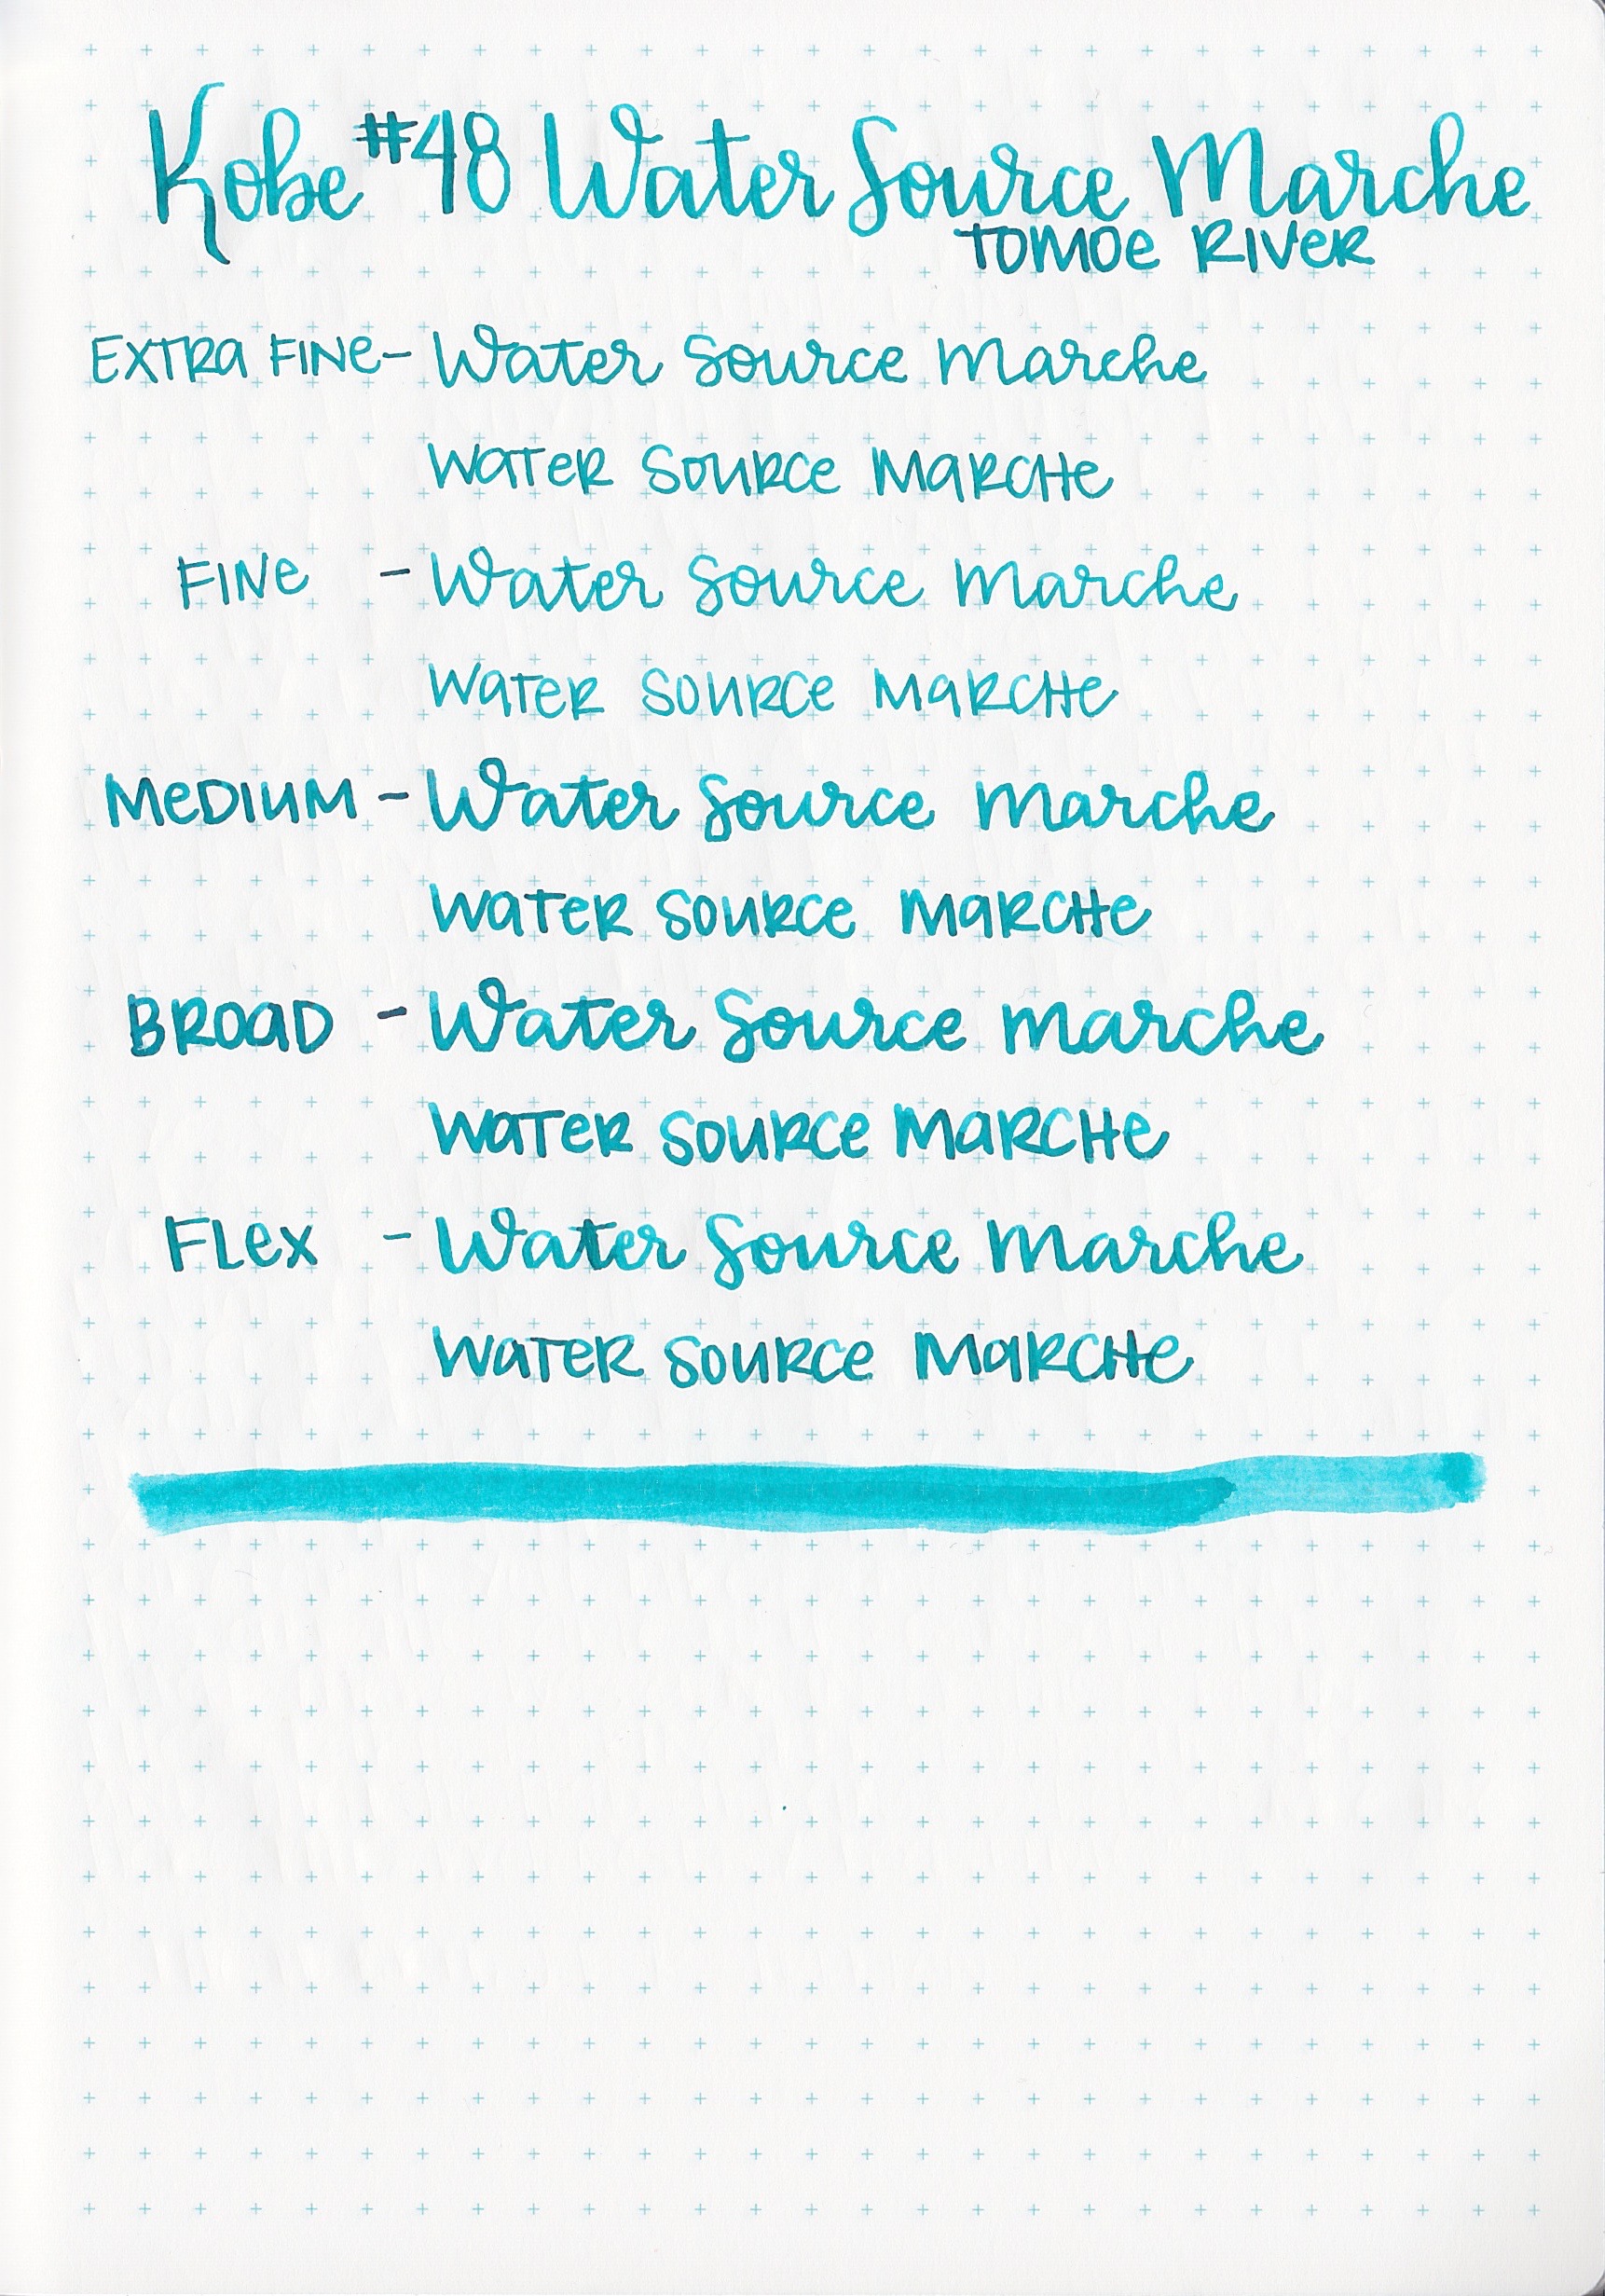 Kobe #48 Water Source Marche
Tomoe River
Extra Fine - Water Source Marche
Water Source Marche
Fine - Water Source Marche
Water Source Marche
Medium - Water Source Marche
Water Source Marche
Broad - Water Source Marche
Water Source Marche
Flex - Water Source Marche
Water Source Marche